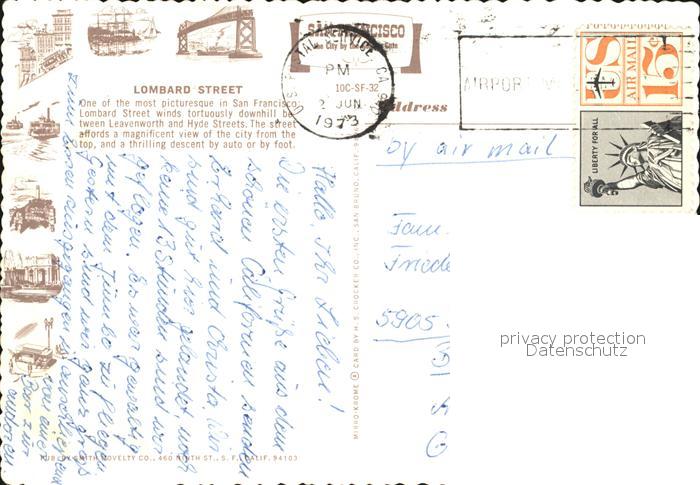 SAN FRANCISCO
The City by the Golden Gate
10C-SF-32
U.S. POSTAL SERVICE, CA
PM
2 JUN
1973
AIRPORT
US
AIR MAIL
15¢
LIBERTY FOR ALL
LOMBARD STREET
One of the most picturesque in San Francisco
Lombard Street winds tortuously downhill be-
tween Leavenworth and Hyde Streets. The street
affords a magnificent view of the city from the
top, and a thrilling descent by auto or by foot.
Address
by air mail
Fam.
Friede
5905
Hallo, Ihr Lieben!
Die ersten Grüße aus dem
schönen Californien senden
Erhard und Christa. Wir
sind gut hier gelandet, nach
keine 13 Stunden sind wir
geflogen. Es war gewaltig
mit dem Jumbo zu fliegen
Gestern sind wir ganz
MIRRO-KROME ® CARD BY H. S. CROCKER CO., INC., SAN BRUNO, CALIF. 9
PUB. BY SMITH NOVELTY CO., 460 NINTH ST., S. F., CALIF. 94103
privacy protection
Datenschutz